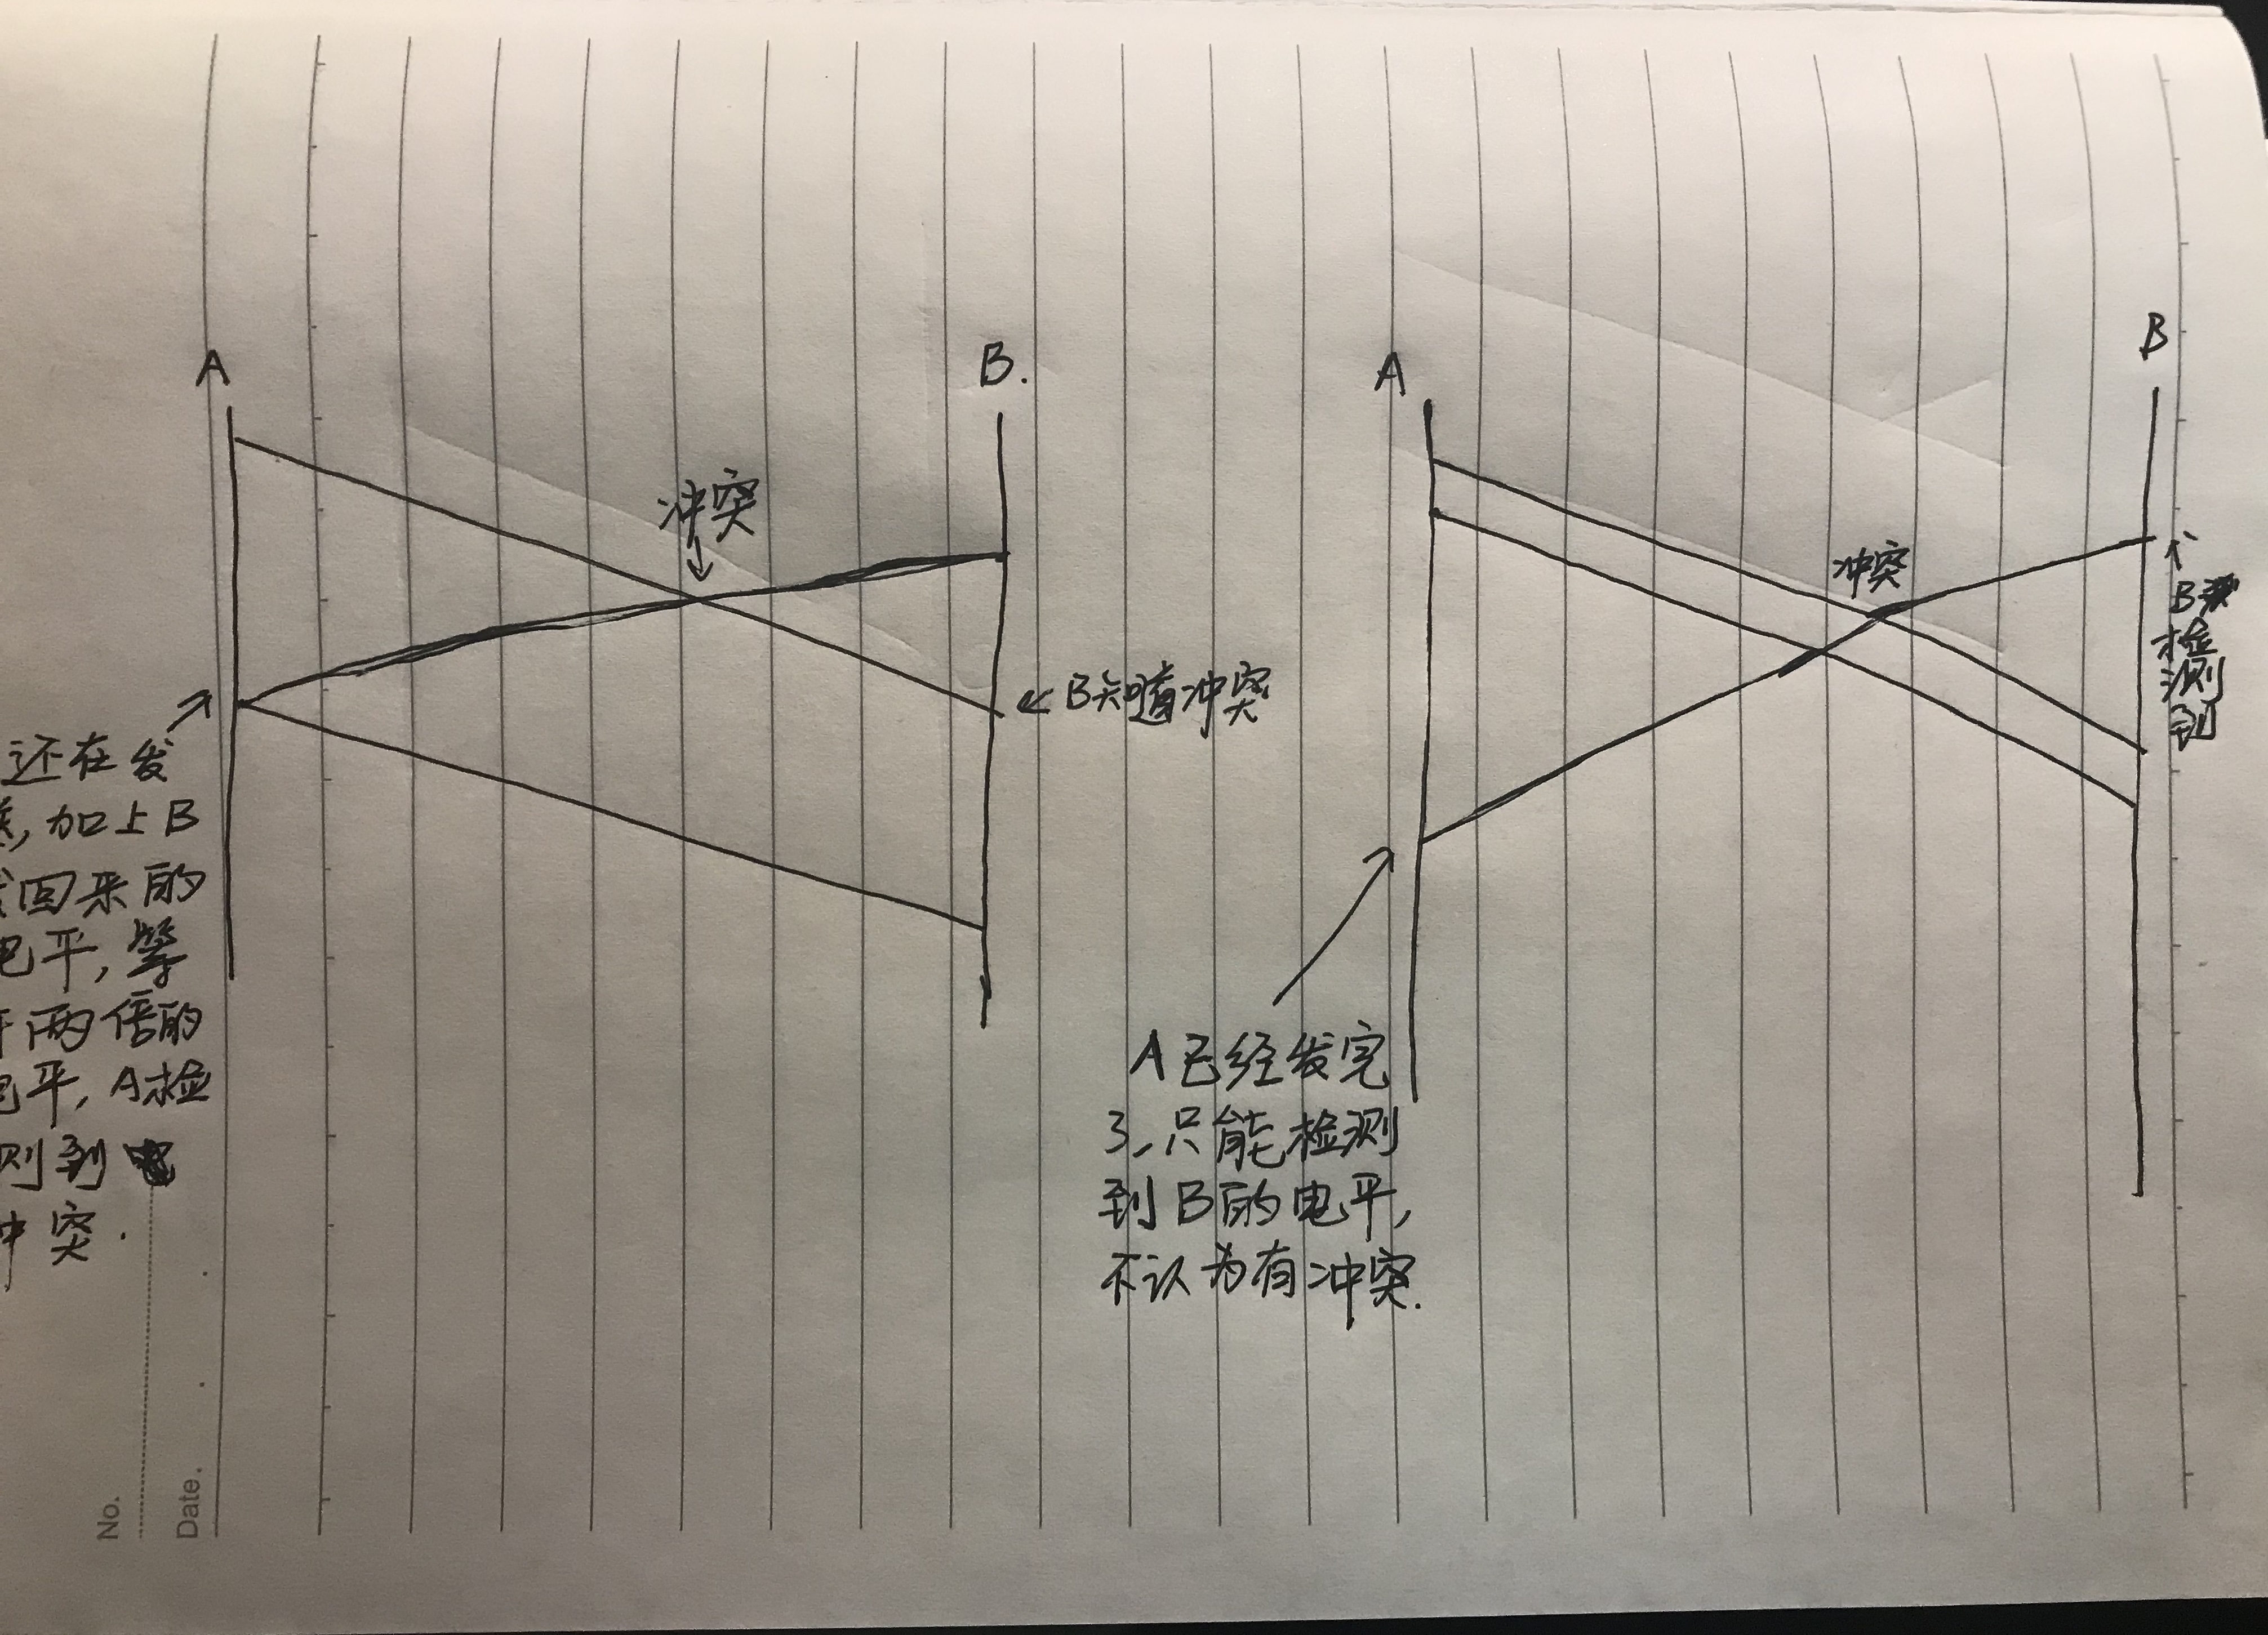 A
B.
冲突
B知道冲突
还在发
,加上B
回来的
电平,等
于两倍的
电平,A检
测到
冲突.
A
B
冲突
B
检
测
到
A已经发完
了,只能检测
到B的电平,
不认为有冲突.
No.
Date.